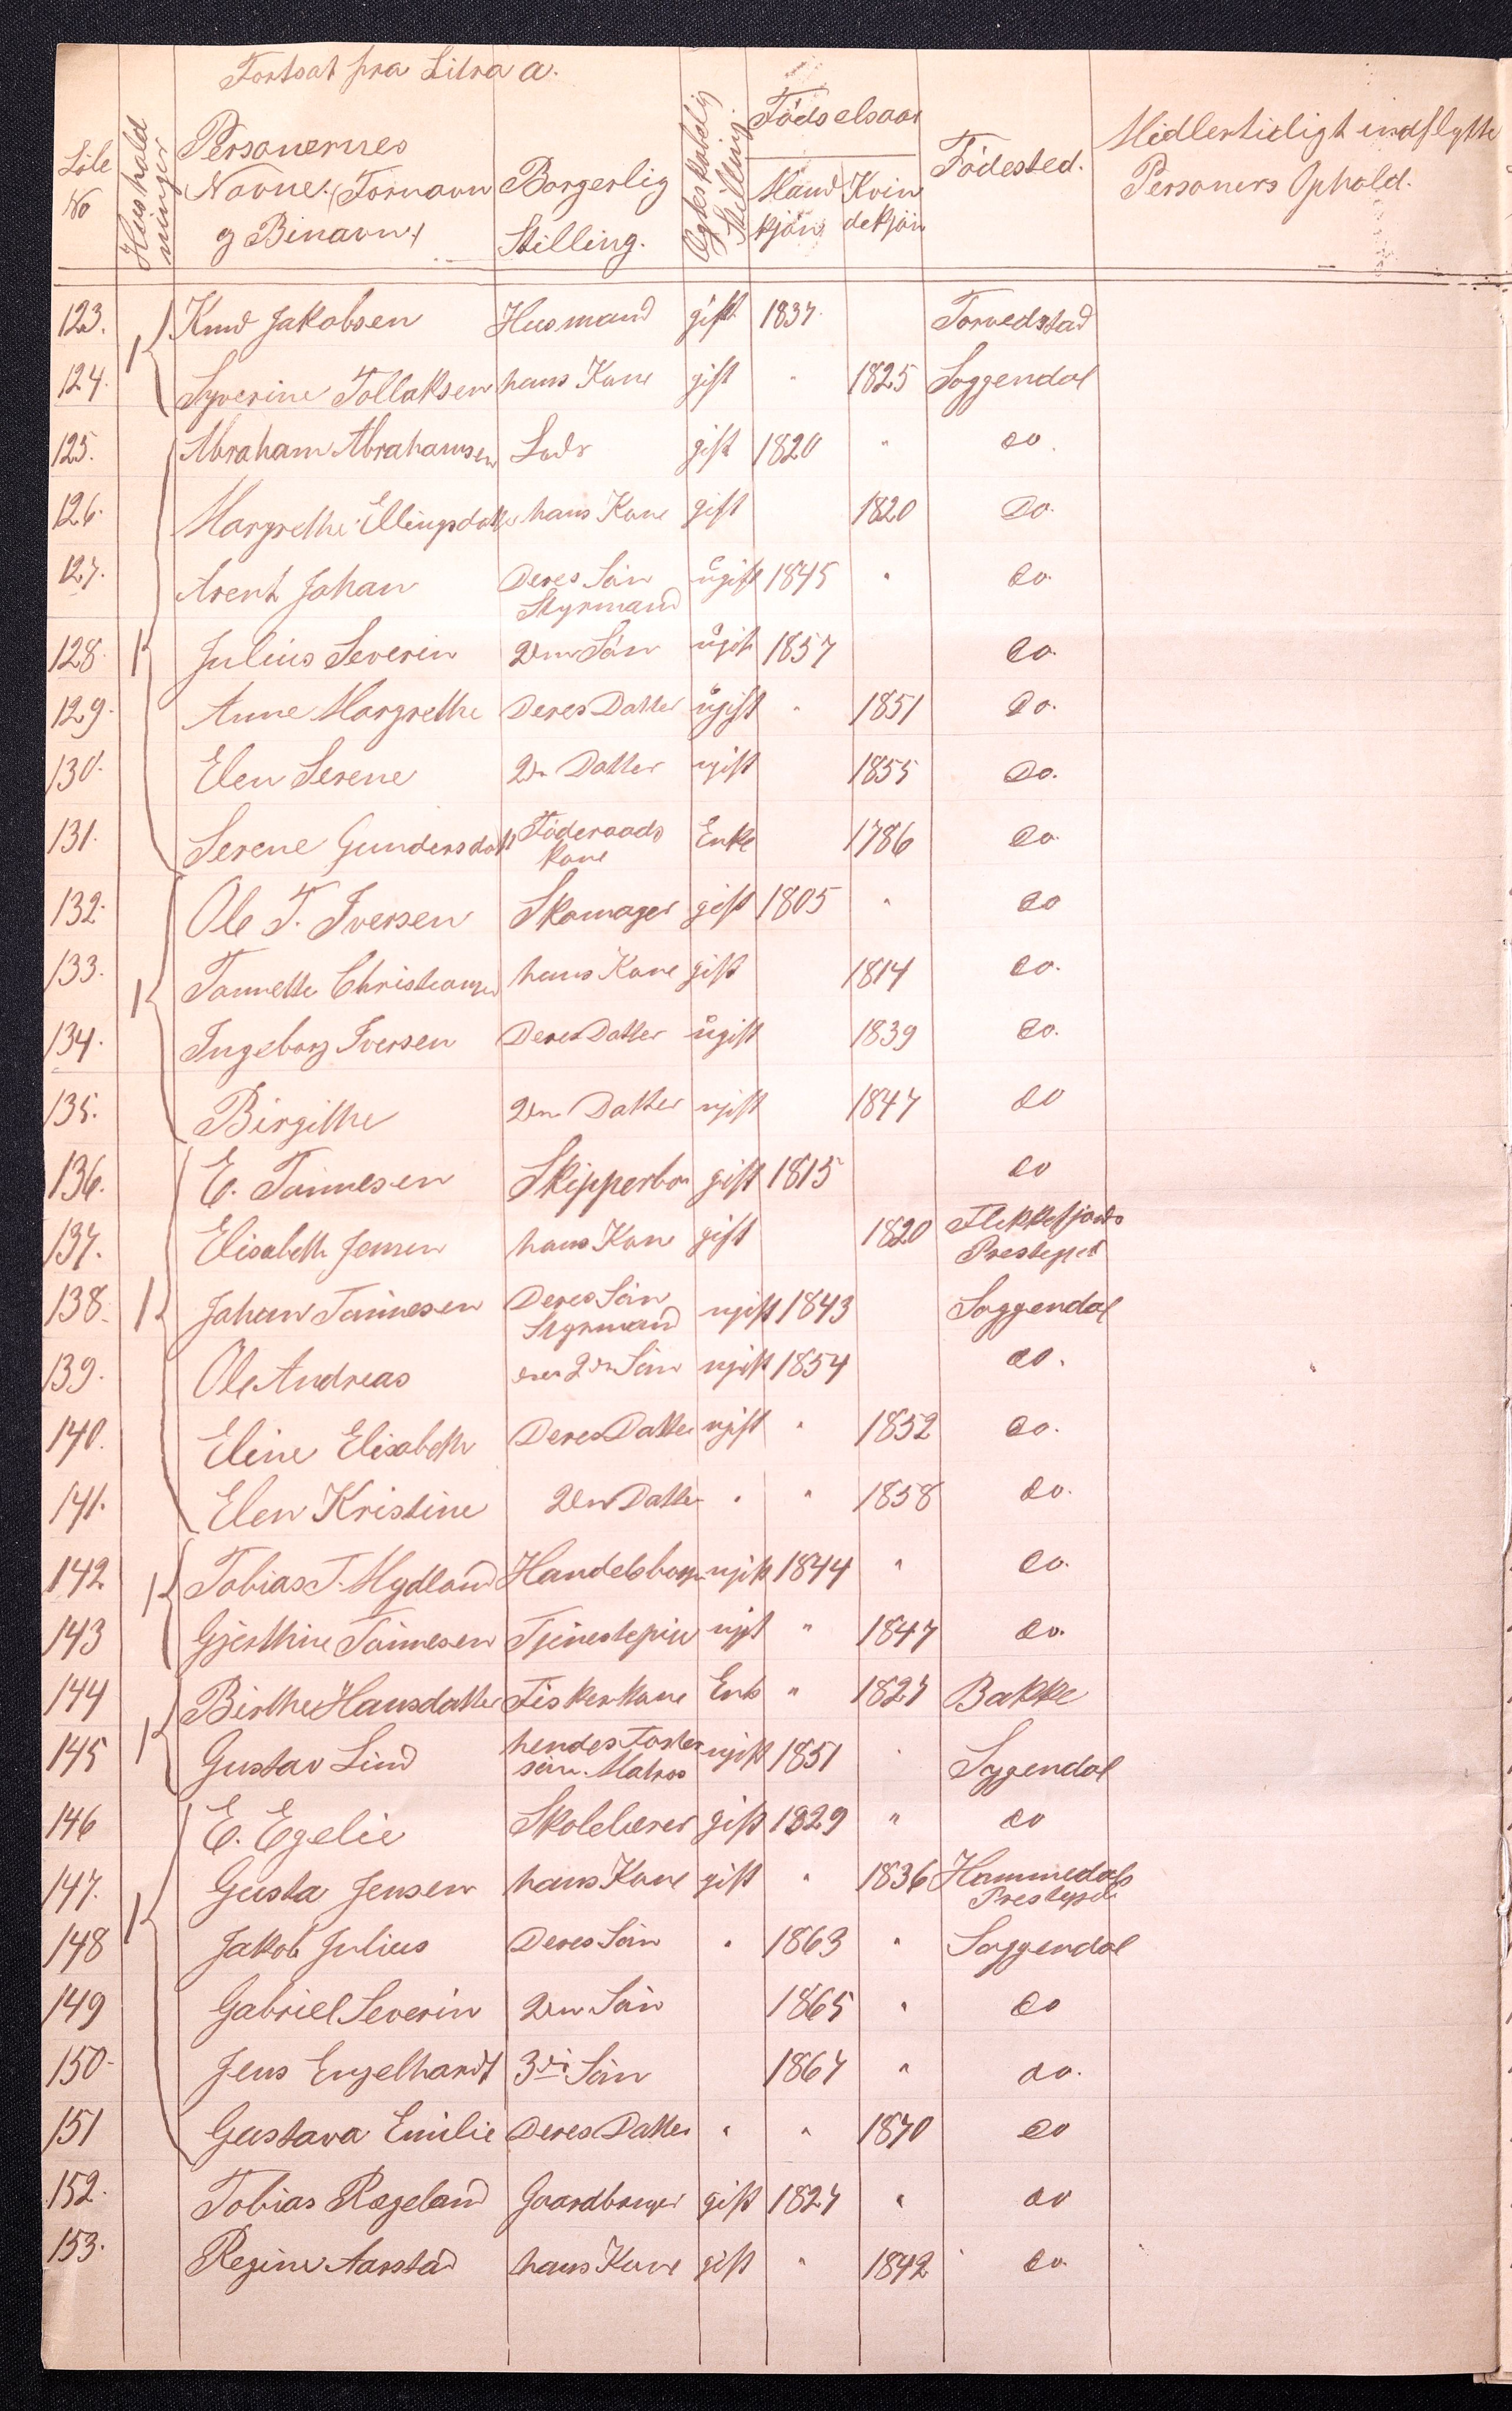 Fortsat fra Litra a.
Löbe No | Hushold ninger | Personernes Navne. (Fornavn og Binavn.) | Borgerlig Stilling. | Ægteskabelig Stilling. | Födselsaar Mand kjön | Kvin dekjön | Födested. | Midlertidigt indflytte Personers Ophold.
123. | 1 | Knud Jakobsen | Husmand | gift | 1837 | | Torvedstad
124. | | Syverine Tollaksen | hans Kone | gift | " | 1825 | Soggendal
125. | 1 | Abraham Abrahamsen | Lods | gift | 1820 | " | do.
126. | | Margrethe Ellingsdatter | hans Kone | gift | | 1820 | do.
127. | | Arent Johan | Deres Sön Styrmand | ugift | 1845 | " | do.
128. | | Julius Severin | 2den Sön | ugift | 1857 | | do.
129. | | Anne Margrethe | Deres Datter | ugift | " | 1851 | do.
130. | | Elen Serene | 2dn Datter | ugift | | 1855 | do.
131. | | Serene Gundersdatt | Föderaads kone | Enke | | 1786 | do.
132. | 1 | Ole T. Iversen | Skomager | gift | 1805 | " | do
133. | | Tonnette Christiansen | hans Kone | gift | | 1814 | do.
134. | | Ingeborg Iversen | Deres Datter | ugift | | 1839 | do.
135. | | Birgithe | 2den Datter | ugift | | 1847 | do
136. | 1 | E. Tönnesen | Skipperbor | gift | 1815 | | do
137. | | Elisabeth Jensen | hans Kone | gift | | 1820 | Flekkefjords Prestegjel
138. | | Johan Tönnesen | Deres Sön Styrmand | ugift | 1843 | | Soggendal
139. | | Ole Andreas | 2dn Sön | ugift | 1854 | | do.
140. | | Eline Elisabeth | Deres Datter | ugift | " | 1852 | do.
141. | | Elen Kristine | 2den Datter | " | " | 1858 | do.
142 | 1 | Tobias T. Mydland | Handelsborger | ugift | 1844 | " | do.
143 | | Gjerthine Tönnesen | Tjenestepige | ugift | " | 1847 | do.
144 | 1 | Birthe Hansdatter | Fiskerkone | Enke | " | 1827 | Bakke
145 | | Gustav Lind | hendes Foster sön. Matros | ugift | 1851 | " | Soggendal
146 | 1 | E. Egelie | Skolelærer | gift | 1829 | " | do
147. | | Gusta Jensen | hans Kone | gift | " | 1836 | Hommedals Prestegjel
148 | | Jakob Julius | Deres Sön | " | 1863 | " | Soggendal
149 | | Gabriel Severin | 2den Sön | | 1865 | " | do
150 | | Jens Engelhardt | 3di Sön | | 1867 | " | do.
151 | | Gustava Emilie | Deres Datter | " | " | 1870 | do
152. | | Tobias Rægeland | Gaardbruger | gift | 1827 | " | do
153. | | Regine Aarstad | hans Kone | gift | " | 1842 | do.